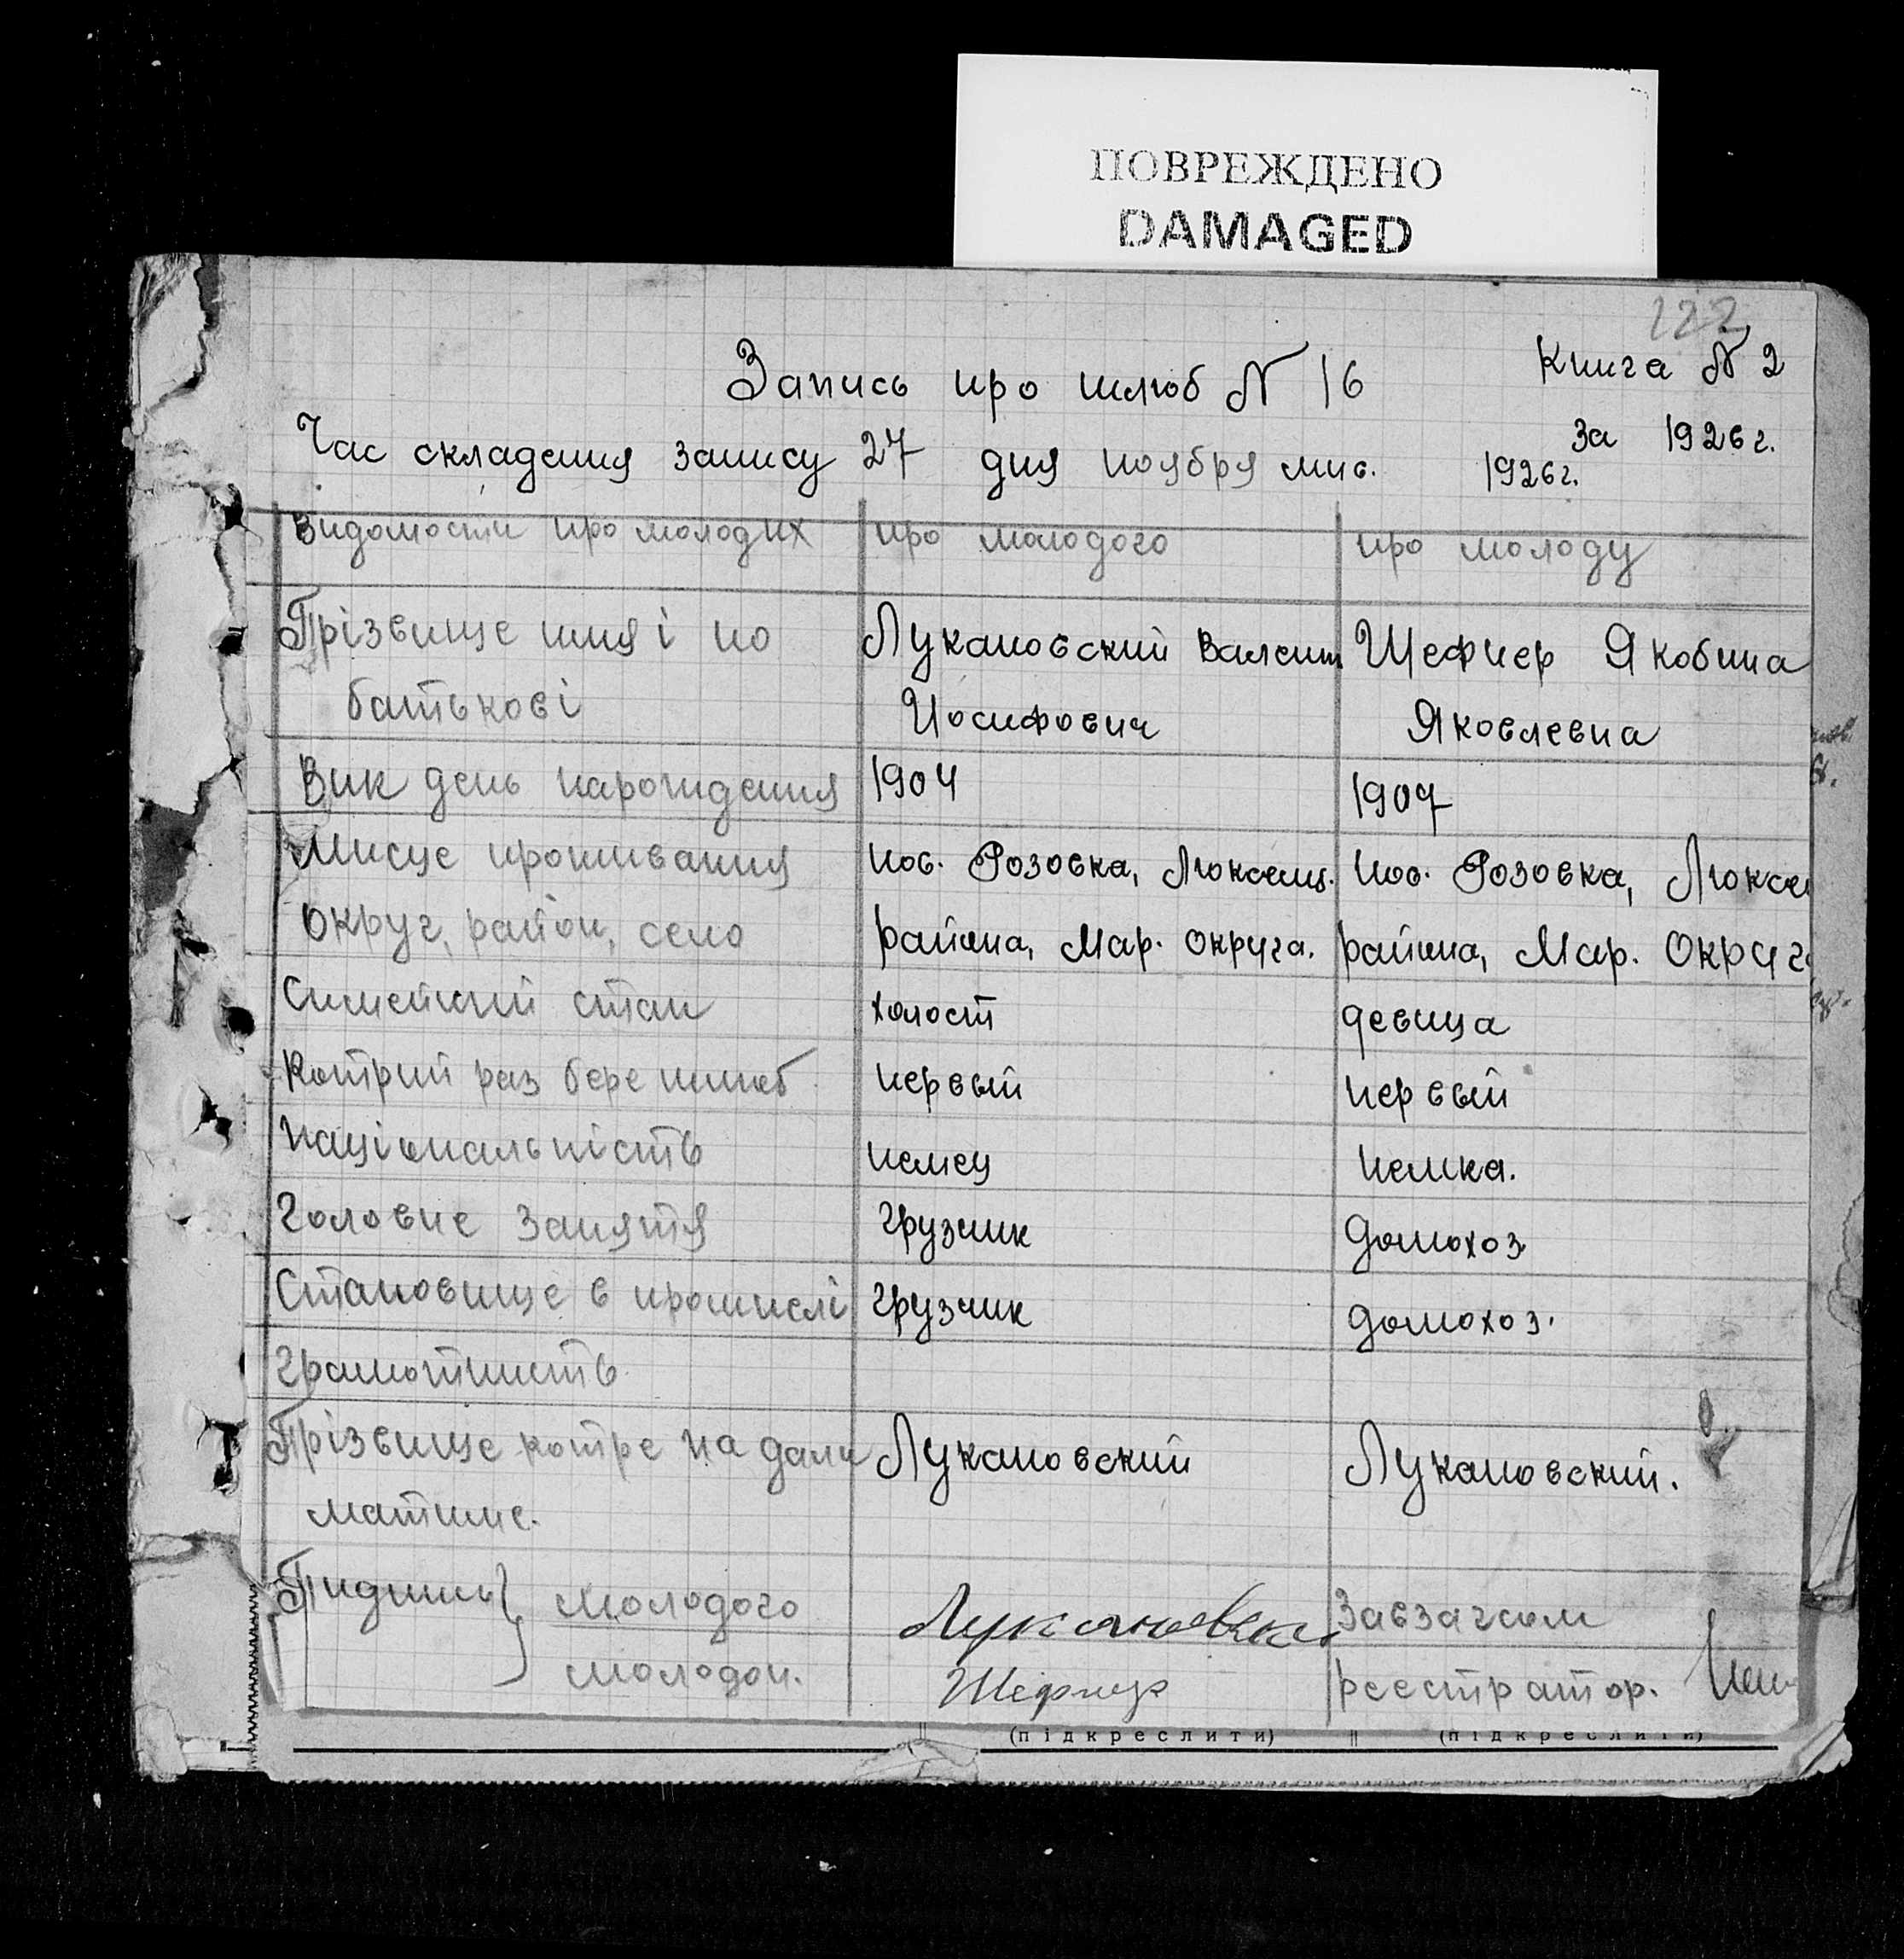 ПОВРЕЖДЕНО
DAMAGED
122
Запись про шлюб N 16
Книга N 2
за 1926 г.
Час складения запису 27 дня ноября мис. 1926 г.
Видомости про молодих про молодого про молоду
Прізвище имя і по Лукановский Валент Шефнер Якобина
батькові Иосифович Яковлевна
Вик день нарождения 1904 1907
Мисце проживания пос. Розовка, Люксемб. пос. Розовка, Люксе
округ, район, село района, Мар. округа. района, Мар. Округ
Симейний стан холост девица
Котрий раз бере шлюб первый первый
Національність немец немка.
Головне заняття грузчик домохоз.
Становище в промислі грузчик домохоз.
Грамотнисть
Прізвище котре на дали Лукановский Лукановский.
матиме.
Пидпись молодого Лукановск Завзагсом
молодои. Шефнер регистратор.
(підкреслити) (підкреслити)